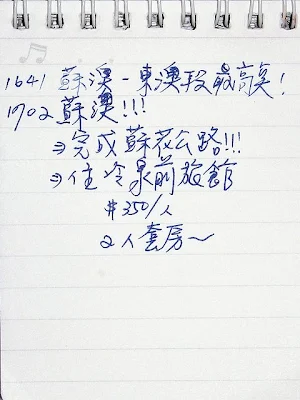 1641 蘇澳-東澳段最高點!
1702 蘇澳!!!
⇒完成蘇花公路!!!
⇒住冷泉前旅館
$350/人
2人套房~